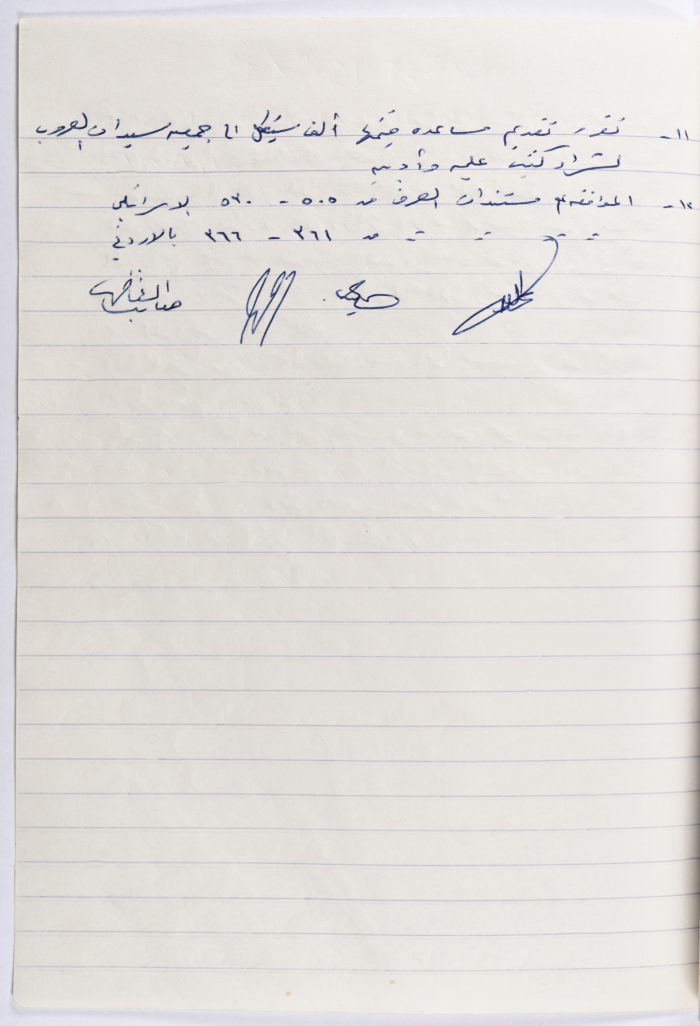 ١١- تقرر تقديم مساعده قيمتها ألف شيكل الى جمعيه سيدات العروب
لشراء كتب علميه وأدبيه
١٢- الموافقه على مستندات الصرف من ٥٠٥ - ٥٣٠ بالاسرائيلي
= = = من ٣٦١ - ٣٦٦ بالاردني